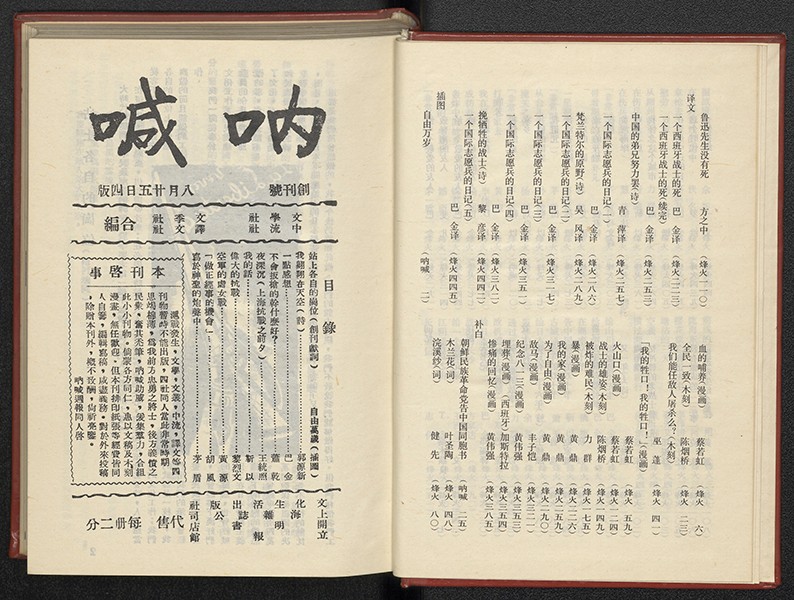 鲁迅先生没有死 方之中 (烽火一一〇)
译文
一个西班牙战士的死 巴 金译 (烽火二二三)
一个西班牙战士的死(续完) 巴 金译
中国的弟兄努力罢(诗) 青 萍译 (烽火二五七)
一个国际志愿兵的日记(一) 巴 金译 (烽火二八六)
梵兰特尔的原野(诗) 吴 风译 (烽火二八九)
一个国际志愿兵的日记(二) 巴 金译 (烽火三一七)
一个国际志愿兵的日记(三) 巴 金译 (烽火三五一)
一个国际志愿兵的日记(四) 巴 金译 (烽火三八二)
挽牺牲的战士(诗) 黎 彦译 (烽火四二二)
一个国际志愿兵的日记(五) 巴 金译 (烽火四四五)
插图
自由万岁 (呐喊 二)
血的哺养(漫画) 蔡若虹 (烽火 六)
全民一致(木刻) 陈烟桥 (烽火 二三)
我们能任敌人屠杀么?(木刻) 巫 蓬 (烽火 四一)
「我的牲口!我的牲口!」(漫画) 蔡若虹 (烽火 五九)
火山口(漫画) 蔡若虹 (烽火一二四)
战士的雄姿(木刻) 陈烟桥 (烽火一四九)
被炸的难民(木刻) 力 群 (烽火一七五)
暴(漫画) 黄 鼎 (烽火二二六)
我的家(漫画) 黄 鼎 (烽火二五九)
为了自由(漫画) 黄 鼎 (烽火二九〇)
敌马(漫画) 丰子恺 (烽火三二一)
纪念八一三(漫画) 黄伟强 (烽火三五三)
埋葬(漫画) (西班牙)加斯特拉 (烽火三五四)
惨痛的回忆(漫画) 黄伟强 (烽火三八五)
补白
朝鲜民族革命党告中国同胞书 (呐喊 二五)
木兰花(词) 叶圣陶 (烽火 四八)
浣溪纱(词) 健 先 (烽火 八〇)
呐喊
創刊號 八月廿五日四版
文學社
中流社
文季社
譯文社
合編
目錄
站上各自的崗位(創刊獻詞)
自由萬歲(插圖)
我翱翔在天空(詩)……郭源新
一點感想……巴 金
不會扳槍的幹什麼好?……蕭 乾
夜深沉(上海抗戰之前夕)……王統照
我的話……靳 以
偉大的抗戰……黎烈文
空軍的處女戰……黃 源
「做正經事的機會」……胡 風
寫於神聖的炮聲中……茅 盾
本刊啓事
滬戰發生,文學,文叢,中流,譯文等四
刊物暫時不能出版,四社同人當此非常時期
思竭棉薄,爲我前方忠勇之將士,後方義憤之
民衆,奮其禿筆,吶喊助威,爰集羣力,合組
此小小刊物,倘蒙各方同仁,惠以文稿及木刻
漫畫,無任歡迎。但本刊排印紙張等經費皆同
人自籌,編輯寫稿,咸盡義務,對於外來投稿
,除贈本刊外,概不致酬,尙祈亮鑒。
吶喊週報同人啓
文化生活出版社
上海雜誌公司
開明書店
立報館
代售 每册二分